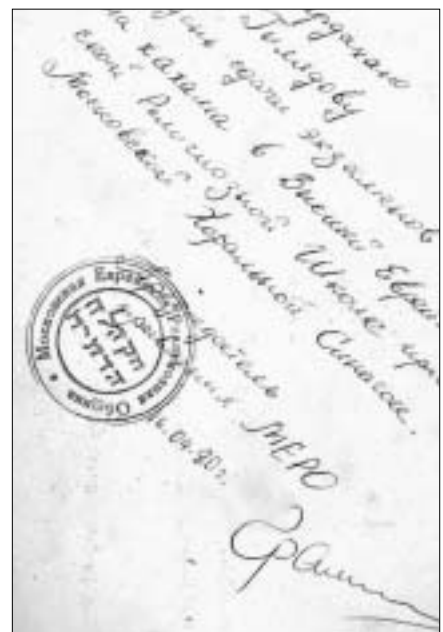 Гилядову
день сдачи экзаменов
на хахама в Высшей Еврей
ской Религиозной Школе при
Московской Хоральной Синагоге.
Председатель
МЕРО
16.04.80г.
Московская Еврейская Религиозная Община
הקהלה
הדתית